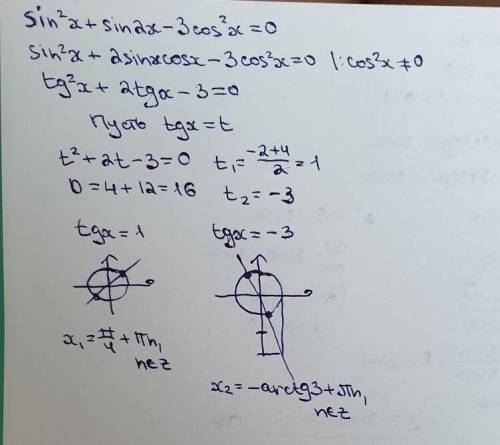 sin²x + sin2x - 3cos²x = 0
sin²x + 2sinxcosx - 3cos²x = 0 |: cos²x ≠ 0
tg²x + 2tgx - 3 = 0
Пусть tgx = t
t² + 2t - 3 = 0 t₁ = (-2+4)/2 = 1
D = 4 + 12 = 16 t₂ = -3
tgx = 1 tgx = -3
x₁ = π/4 + πn, n∈Z
x₂ = -arctg3 + πn, n∈Z